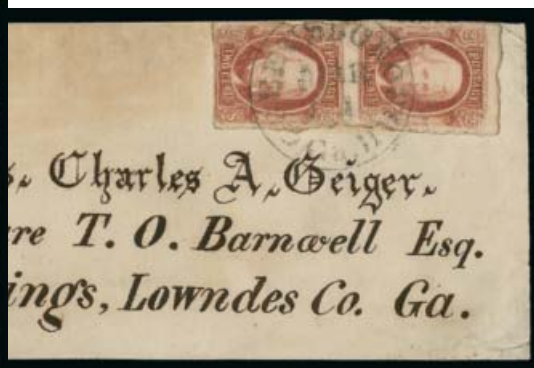 s. Charles A. Geiger.
re T. O. Barnwell Esq.
ings, Lowndes Co. Ga.